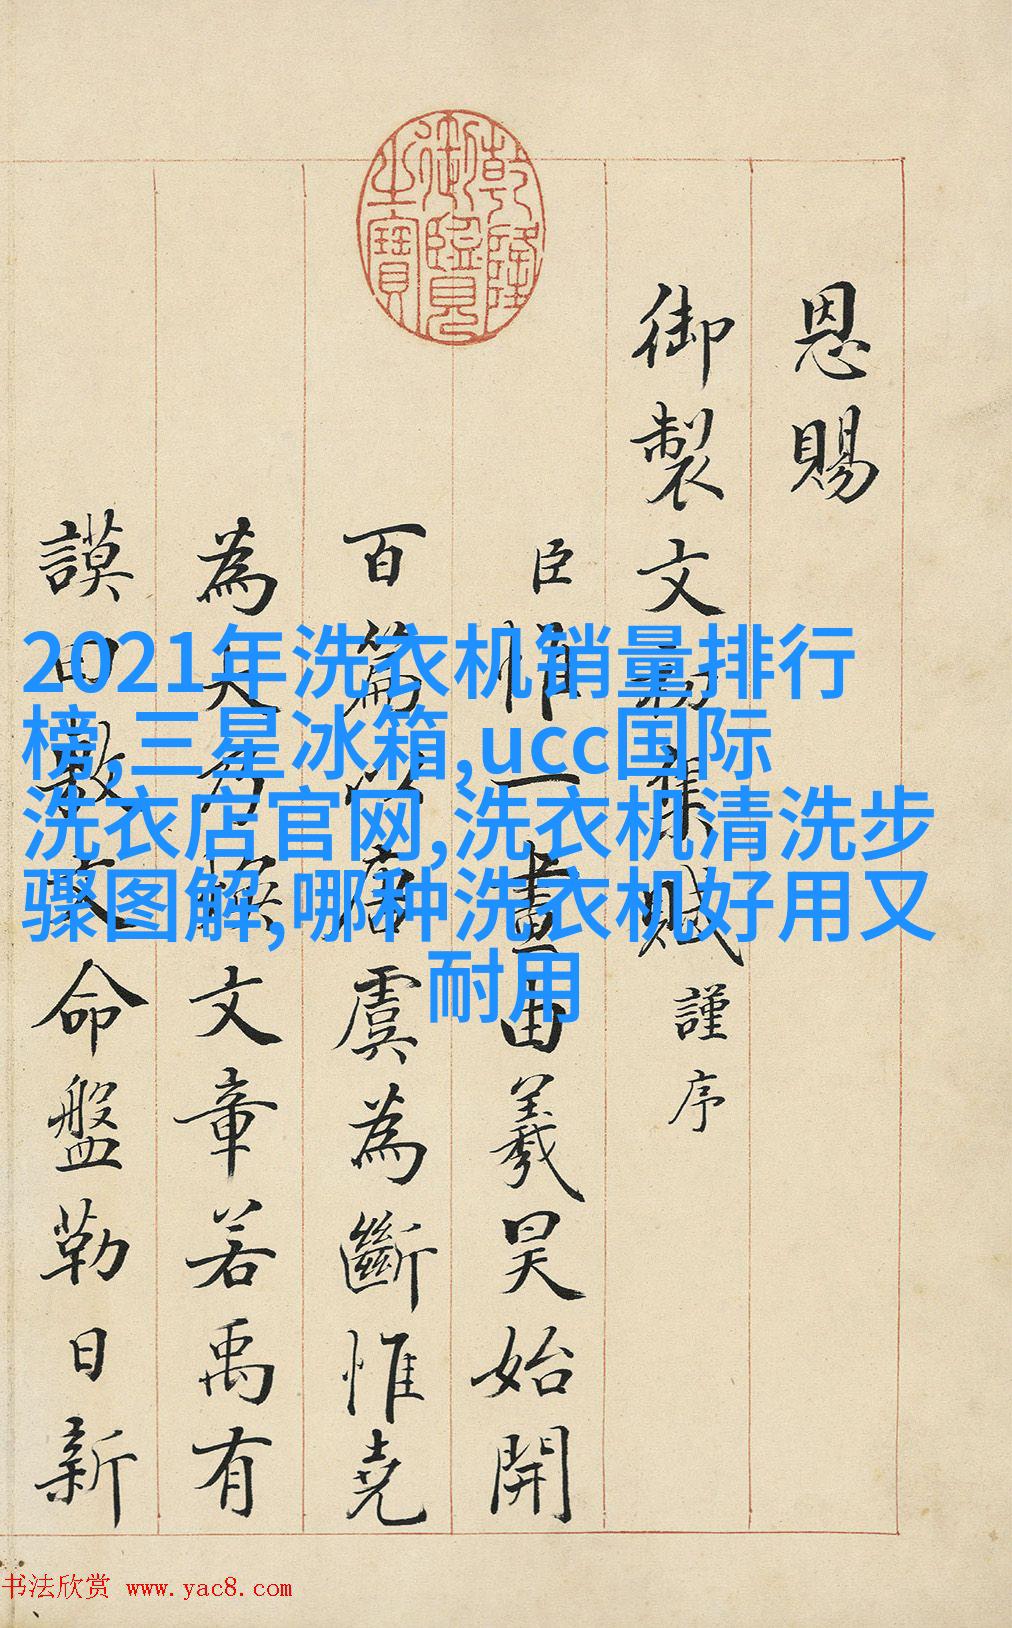 乾隆御覽之寶
恩賜
御製文初集賦謹序
臣惟一畫由羲昊始開
百篇以唐虞為斷惟堯
為大乃煥文章若禹有
謨曰敷文命盤勒日新
2021年洗衣机销量排行
榜,三星冰箱,ucc国际
洗衣店官网,洗衣机清洗步
骤图解,哪种洗衣机好用又
耐用
书法欣赏 www.yac8.com